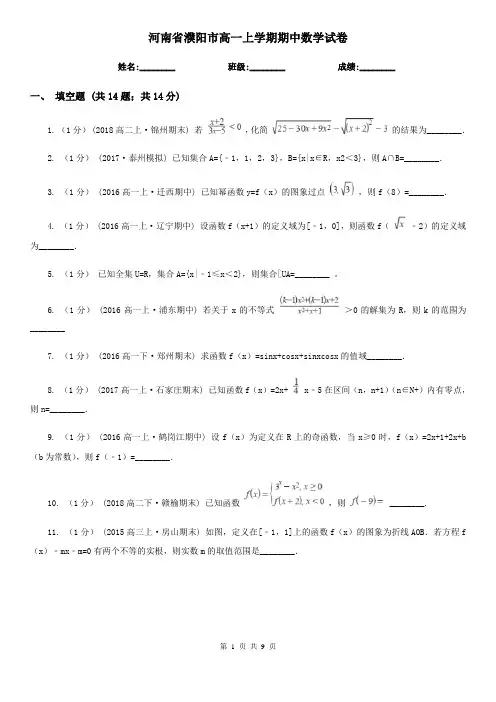 河南省濮阳市高一上学期期中数学试卷
姓名:________ 班级:________ 成绩:________
一、 填空题 (共14题；共14分)
1. (1分) (2018高二上·锦州期末) 若 (x+2)/(3x-5) < 0 ,化简 √(25-30x+9x²) - √((x+2)²) - 3 的结果为________.
2. (1分) (2017·泰州模拟) 已知集合A={﹣1，1，2，3}，B={x|x∈R，x2＜3}，则A∩B=________.
3. (1分) (2016高一上·迁西期中) 已知幂函数y=f（x）的图象过点 (3, √3) ，则f（8）=________.
4. (1分) (2016高一上·辽宁期中) 设函数f（x+1）的定义域为[﹣1，0]，则函数f（ √x ﹣2）的定义域
为________.
5. (1分) 已知全集U=R，集合A={x|﹣1≤x＜2}，则集合∁UA=________ 。
6. (1分) (2016高一上·浦东期中) 若关于x的不等式 ((k-1)x²+(k-1)x+2)/(x²+x+1) ＞0的解集为R，则k的范围为
________
7. (1分) (2016高一下·郑州期末) 求函数f（x）=sinx+cosx+sinxcosx的值域________.
8. (1分) (2017高一上·石家庄期末) 已知函数f（x）=2x+ 1/4 x﹣5在区间（n，n+1）（n∈N+）内有零点，
则n=________.
9. (1分) (2016高一上·鹤岗江期中) 设f（x）为定义在R上的奇函数，当x≥0时，f（x）=2x+1+2x+b
（b为常数），则f（﹣1）=________.
10. (1分) (2018高二下·赣榆期末) 已知函数 f(x)={3ˣ-x², x≥0; f(x+2), x<0 ，则 f(-9)= ________.
11. (1分) (2015高三上·房山期末) 如图，定义在[﹣1，1]上的函数f（x）的图象为折线AOB．若方程f
（x）﹣mx﹣m=0有两个不等的实根，则实数m的取值范围是________.
第 1 页 共 9 页